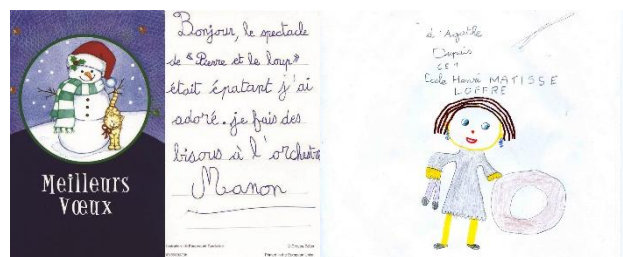 Meilleurs
Vœux
Bonjour, le spectacle
de "Pierre et le loup"
était épatant j'ai
adoré. je fais des
bisous à l'orchestre
Manon
à Agathe
Dupuis
CE1
Ecole Henri MATISSE
LOFFRE